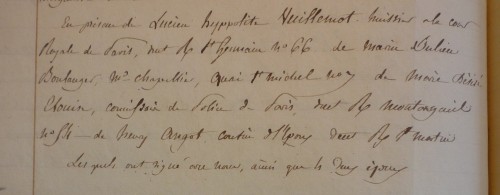 En présence de Lucien hyppolite huissier à la cour
Royale de Paris, dnt R St Germain n° 66 de marie Julien
Boulanger, md chapellier, quai St michel n° 7 de marie Désiré
commissaire de Police de Paris, dnt R montorgueil
n° 54 – de henry Angot cousin de l'Epoux dnt R St martin
Les quels ont signé avec nous, ainsi que les deux époux